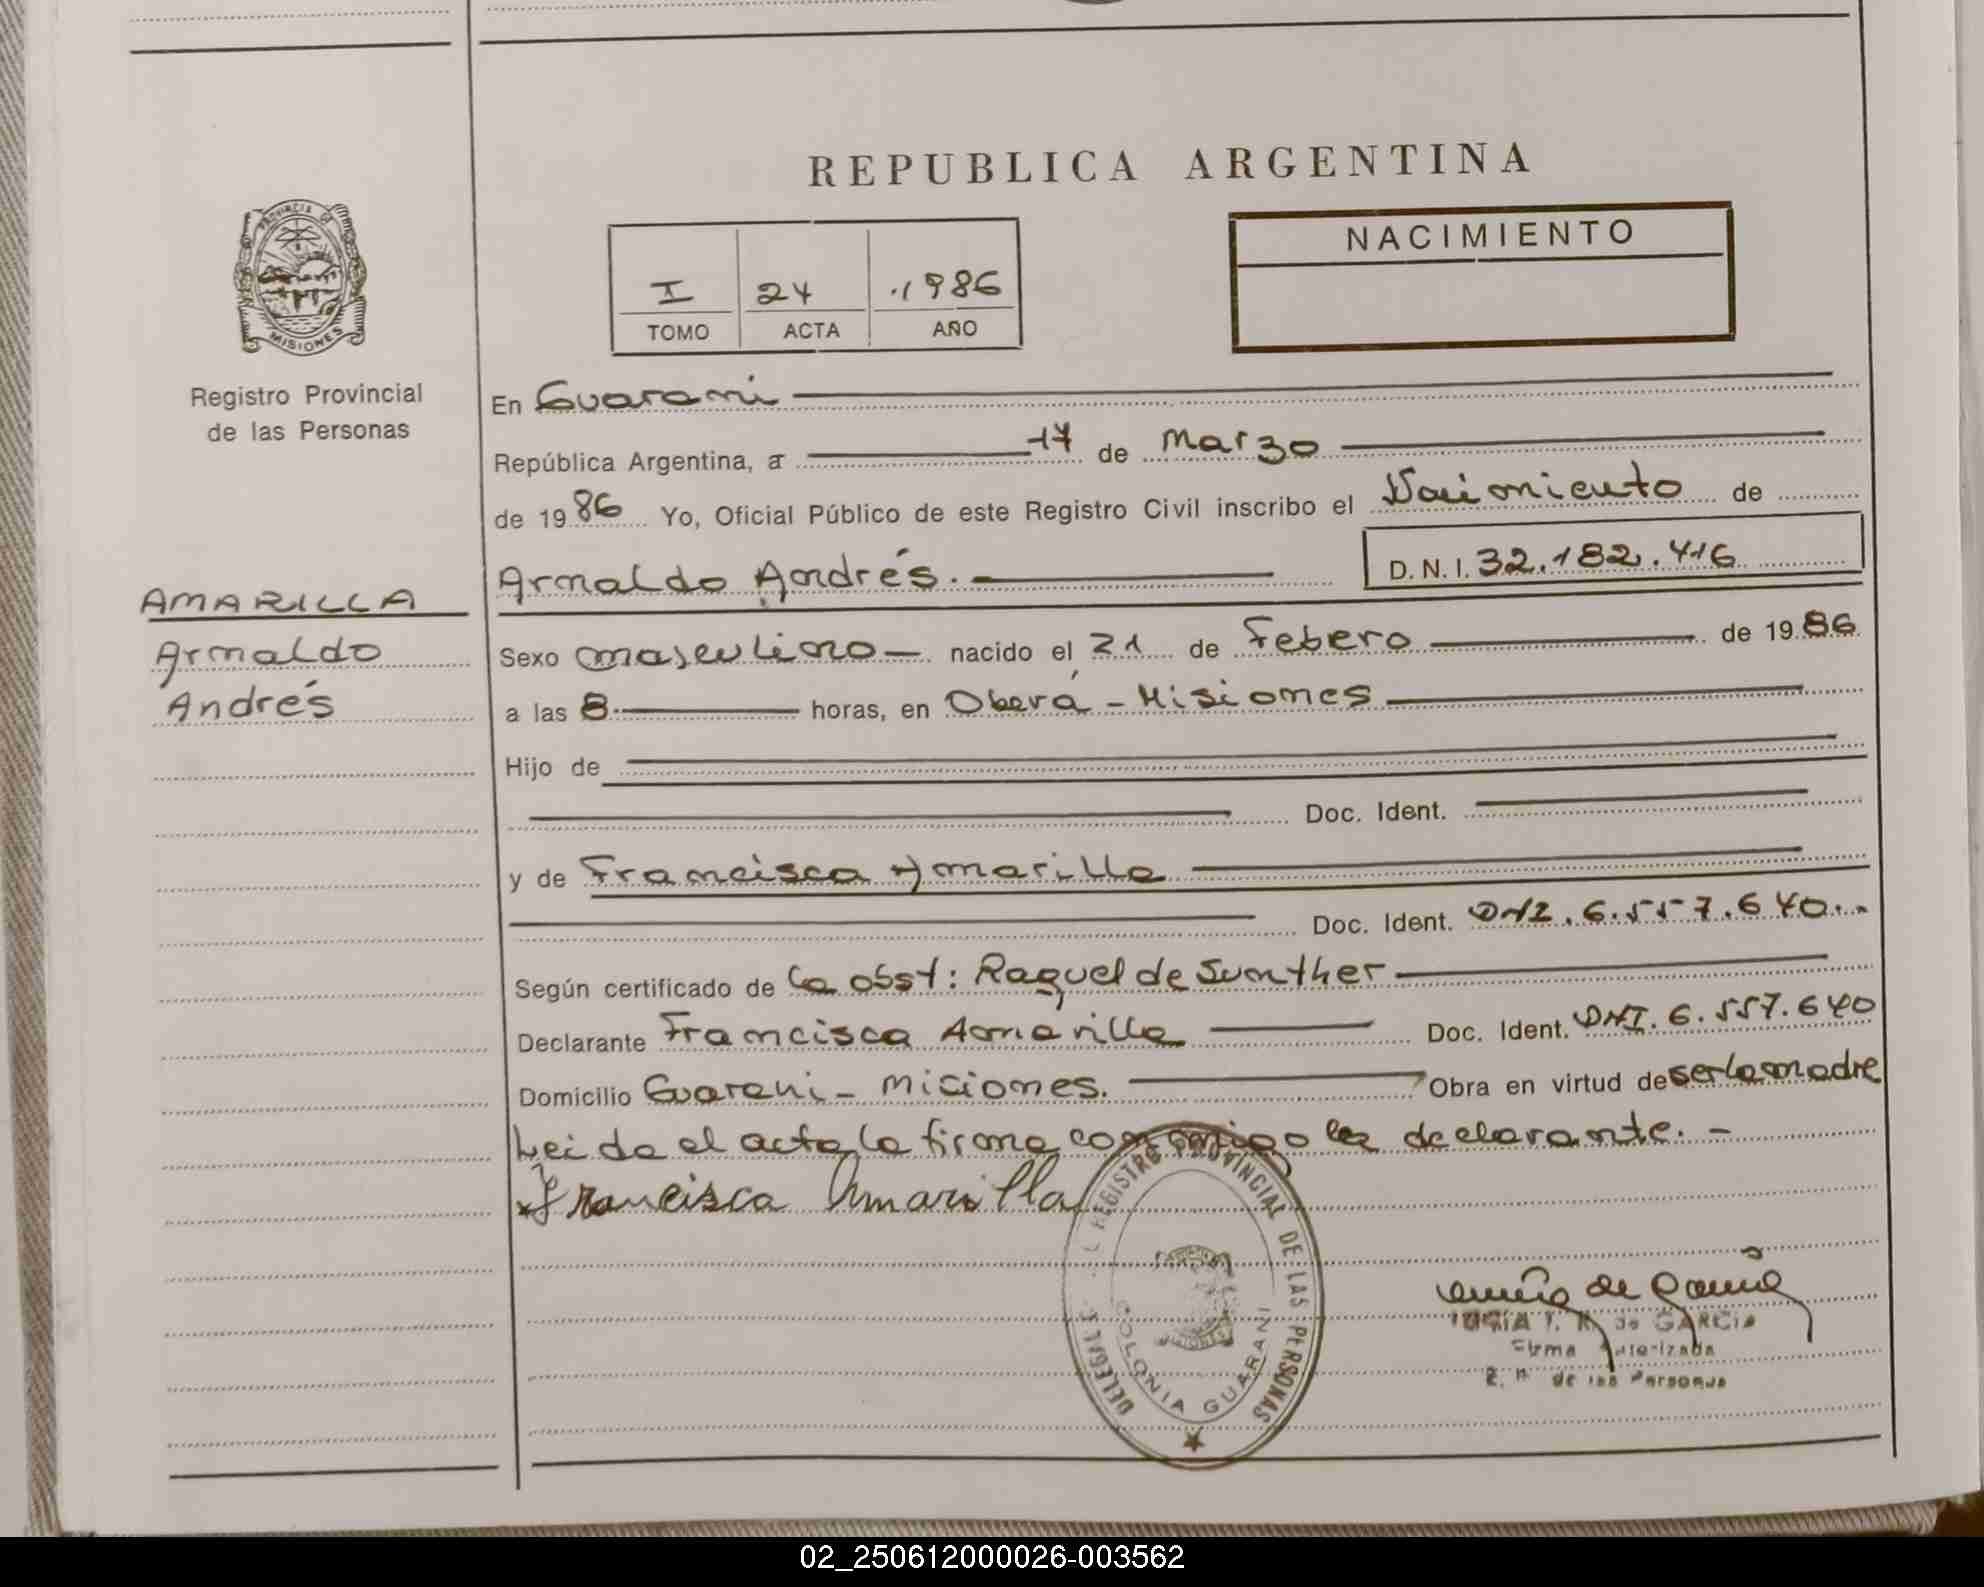 REPUBLICA ARGENTINA
PROVINCIA DE
MISIONES
Registro Provincial
de las Personas
I 24 .1986
TOMO ACTA AÑO
NACIMIENTO
En Guarani
República Argentina, a 17 de Marzo
de 1986 Yo, Oficial Público de este Registro Civil inscribo el Nacimiento de
Arnaldo Andrés. D.N.I. 32.182.416
AMARILLA
Arnaldo
Andrés
Sexo masculino nacido el 21 de Febero de 1986
a las 8 horas, en Oberá - Misiones
Hijo de
Doc. Ident.
y de Francisca Amarilla
Doc. Ident. DNI. 6.557.640..
Según certificado de la obst: Raquel de Sunther
Declarante Francisca Amarilla Doc. Ident. DNI. 6.557.640
Domicilio Guarani - Misiones. Obra en virtud de ser la madre
Leida el acta la firma conmigo la declarante. -
Francisca Amarilla
REGISTRO PROVINCIAL DE LAS PERSONAS
COLONIA GUARANI
de Garcia
de GARCIA
Firma Autorizada
de las Personas
02_250612000026-003562